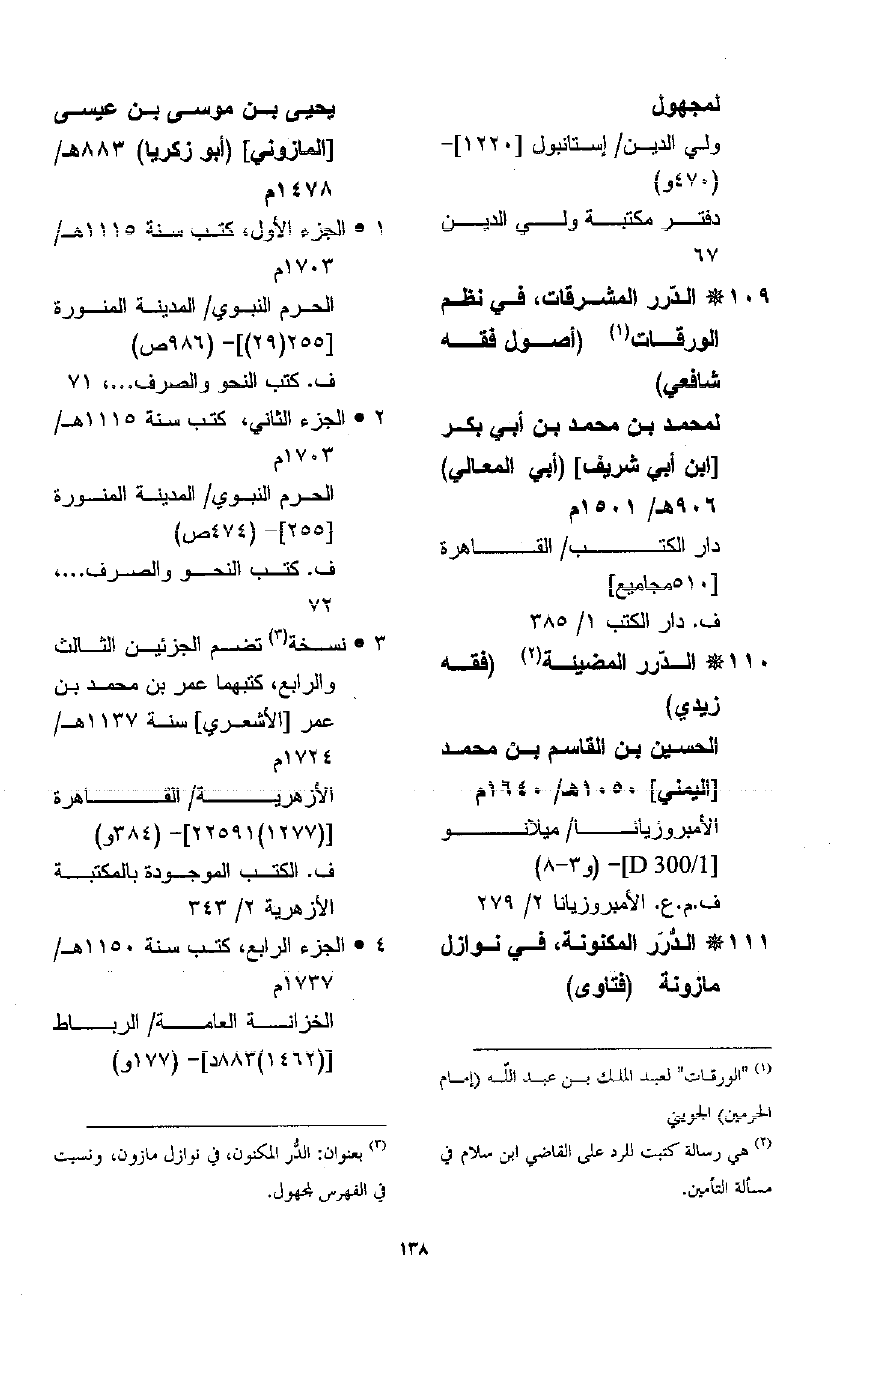 لمجهول
ولي الديـن/ إستانبول [١٢٢٠]-
(٤٧٠و)
دفتر مكتبة ولي الدين
٦٧
١٠٩ * الدّرر المشرقات، في نظم
الورقات(١) (أصول فقه
شافعي)
لمحمد بن محمد بن أبي بكر
[ابن أبي شريف] (أبي المعالي)
٩٠٦هـ/ ١٥٠١م
دار الكتب/ القاهرة
[٥١٠مجاميع]
ف. دار الكتب ١/ ٣٨٥
١١٠ * الدّرر المضيئة(٢) (فقه
زيدي)
الحسين بن القاسم بن محمد
[اليمني] ١٠٥٠هـ/ ١٦٤٠م
الأمبروزيانا/ ميلانو
[D 300/1]- (و٣-٨)
ف.م.ع. الأمبروزيانا ٢/ ٢٧٩
١١١ * الدُّرَر المكنونة، في نوازل
مازونة (فتاوى)
(١) "الورقات" لعبد الملك بن عبد اللّه (إمام
الحرمين) الجويني
(٢) هي رسالة كتبت للرد على القاضي ابن سلام في
مسألة التأمين.
يحيى بن موسى بن عيسى
[المازوني] (أبو زكريا) ٨٨٣هـ/
١٤٧٨م
١ • الجزء الأول، كتب سنة ١١١٥هـ/
١٧٠٣م
الحرم النبوي/ المدينة المنورة
[٢٥٥(٢٩)]- (٩٨٦ص)
ف. كتب النحو والصرف...، ٧١
٢ • الجزء الثاني، كتب سنة ١١١٥هـ/
١٧٠٣م
الحرم النبوي/ المدينة المنورة
[٢٥٥]- (٤٧٤ص)
ف. كتب النحو والصرف...،
٧٢
٣ • نسخة(٣) تضم الجزئين الثالث
والرابع، كتبهما عمر بن محمد بن
عمر [الأشعري] سنة ١١٣٧هـ/
١٧٢٤م
الأزهرية/ القاهرة
[(١٢٧٧)٢٢٥٩١]- (٣٨٤و)
ف. الكتب الموجودة بالمكتبة
الأزهرية ٢/ ٣٤٣
٤ • الجزء الرابع، كتب سنة ١١٥٠هـ/
١٧٣٧م
الخزانة العامة/ الرباط
[(١٤٦٢)٨٨٣د]- (١٧٧و)
(٣) بعنوان: الدُّر المكنون، في نوازل مازون، ونسبت
في الفهرس لمجهول.
١٣٨